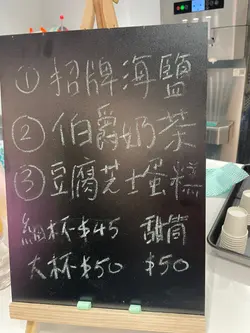 ① 招牌海鹽
② 伯爵奶茶
③ 豆腐芝士蛋糕
細杯$45 甜筒
大杯$50 $50